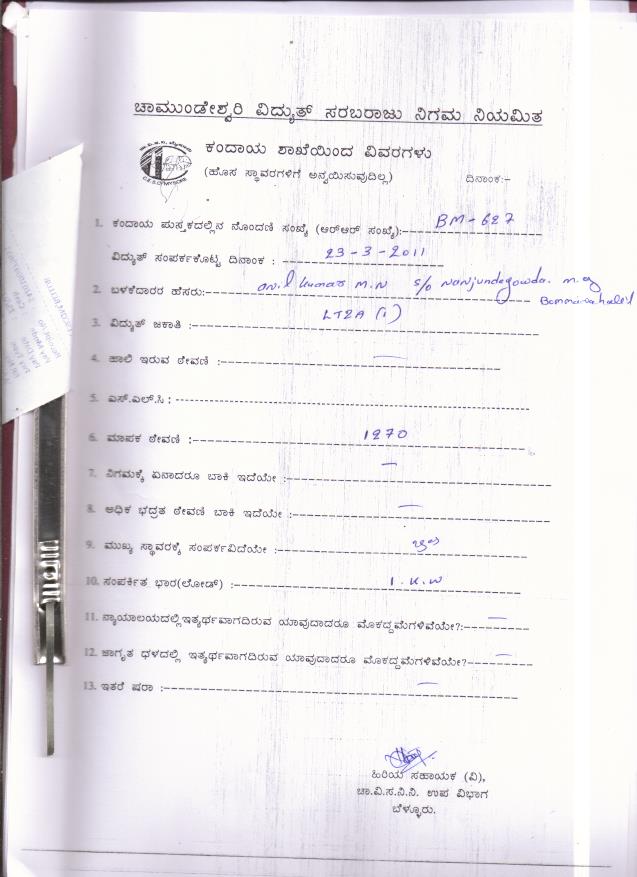 ಚಾಮುಂಡೇಶ್ವರಿ ವಿದ್ಯುತ್ ಸರಬರಾಜು ನಿಗಮ ನಿಯಮಿತ
ಕಂದಾಯ ಶಾಖೆಯಿಂದ ವಿವರಗಳು
(ಹೊಸ ಸ್ಥಾವರಗಳಿಗೆ ಅನ್ವಯಿಸುವುದಿಲ್ಲ) ದಿನಾಂಕ:-
1. ಕಂದಾಯ ಪುಸ್ತಕದಲ್ಲಿನ ನೊಂದಣಿ ಸಂಖ್ಯೆ (ಆರ್ಆರ್ ಸಂಖ್ಯೆ):- BM-627
ವಿದ್ಯುತ್ ಸಂಪರ್ಕಕೊಟ್ಟ ದಿನಾಂಕ : 23-3-2011
2. ಬಳಕೆದಾರರ ಹೆಸರು:- anil kumar M.N S/o Nanjundegowda. M.
3. ವಿದ್ಯುತ್ ಜಕಾತಿ :- LT2A (i)
4. ಹಾಲಿ ಇರುವ ಠೇವಣಿ :- —
5. ಎಸ್.ಎಲ್.ಸಿ :
6. ಮಾಪಕ ಠೇವಣಿ :- 1270
7. ನಿಗಮಕ್ಕೆ ಏನಾದರೂ ಬಾಕಿ ಇದೆಯೇ :- —
8. ಅಧಿಕ ಭದ್ರತ ಠೇವಣಿ ಬಾಕಿ ಇದೆಯೇ :- —
9. ಮುಖ್ಯ ಸ್ಥಾವರಕ್ಕೆ ಸಂಪರ್ಕವಿದೆಯೇ :-
10. ಸಂಪರ್ಕಿತ ಭಾರ(ಲೋಡ್) :- 1.K.W
11. ನ್ಯಾಯಾಲಯದಲ್ಲಿ ಇತ್ಯರ್ಥವಾಗದಿರುವ ಯಾವುದಾದರೂ ಮೊಕದ್ದಮೆಗಳಿವೆಯೇ?:- —
12. ಜಾಗೃತ ಧಳದಲ್ಲಿ ಇತ್ಯರ್ಥವಾಗದಿರುವ ಯಾವುದಾದರೂ ಮೊಕದ್ದಮೆಗಳಿವೆಯೇ?- —
13. ಇತರೆ ಷರಾ :- —
ಹಿರಿಯ ಸಹಾಯಕ (ವಿ),
ಚಾ.ವಿ.ಸ.ನಿ.ನಿ. ಉಪ ವಿಭಾಗ
ಬೆಳ್ಳೂರು.